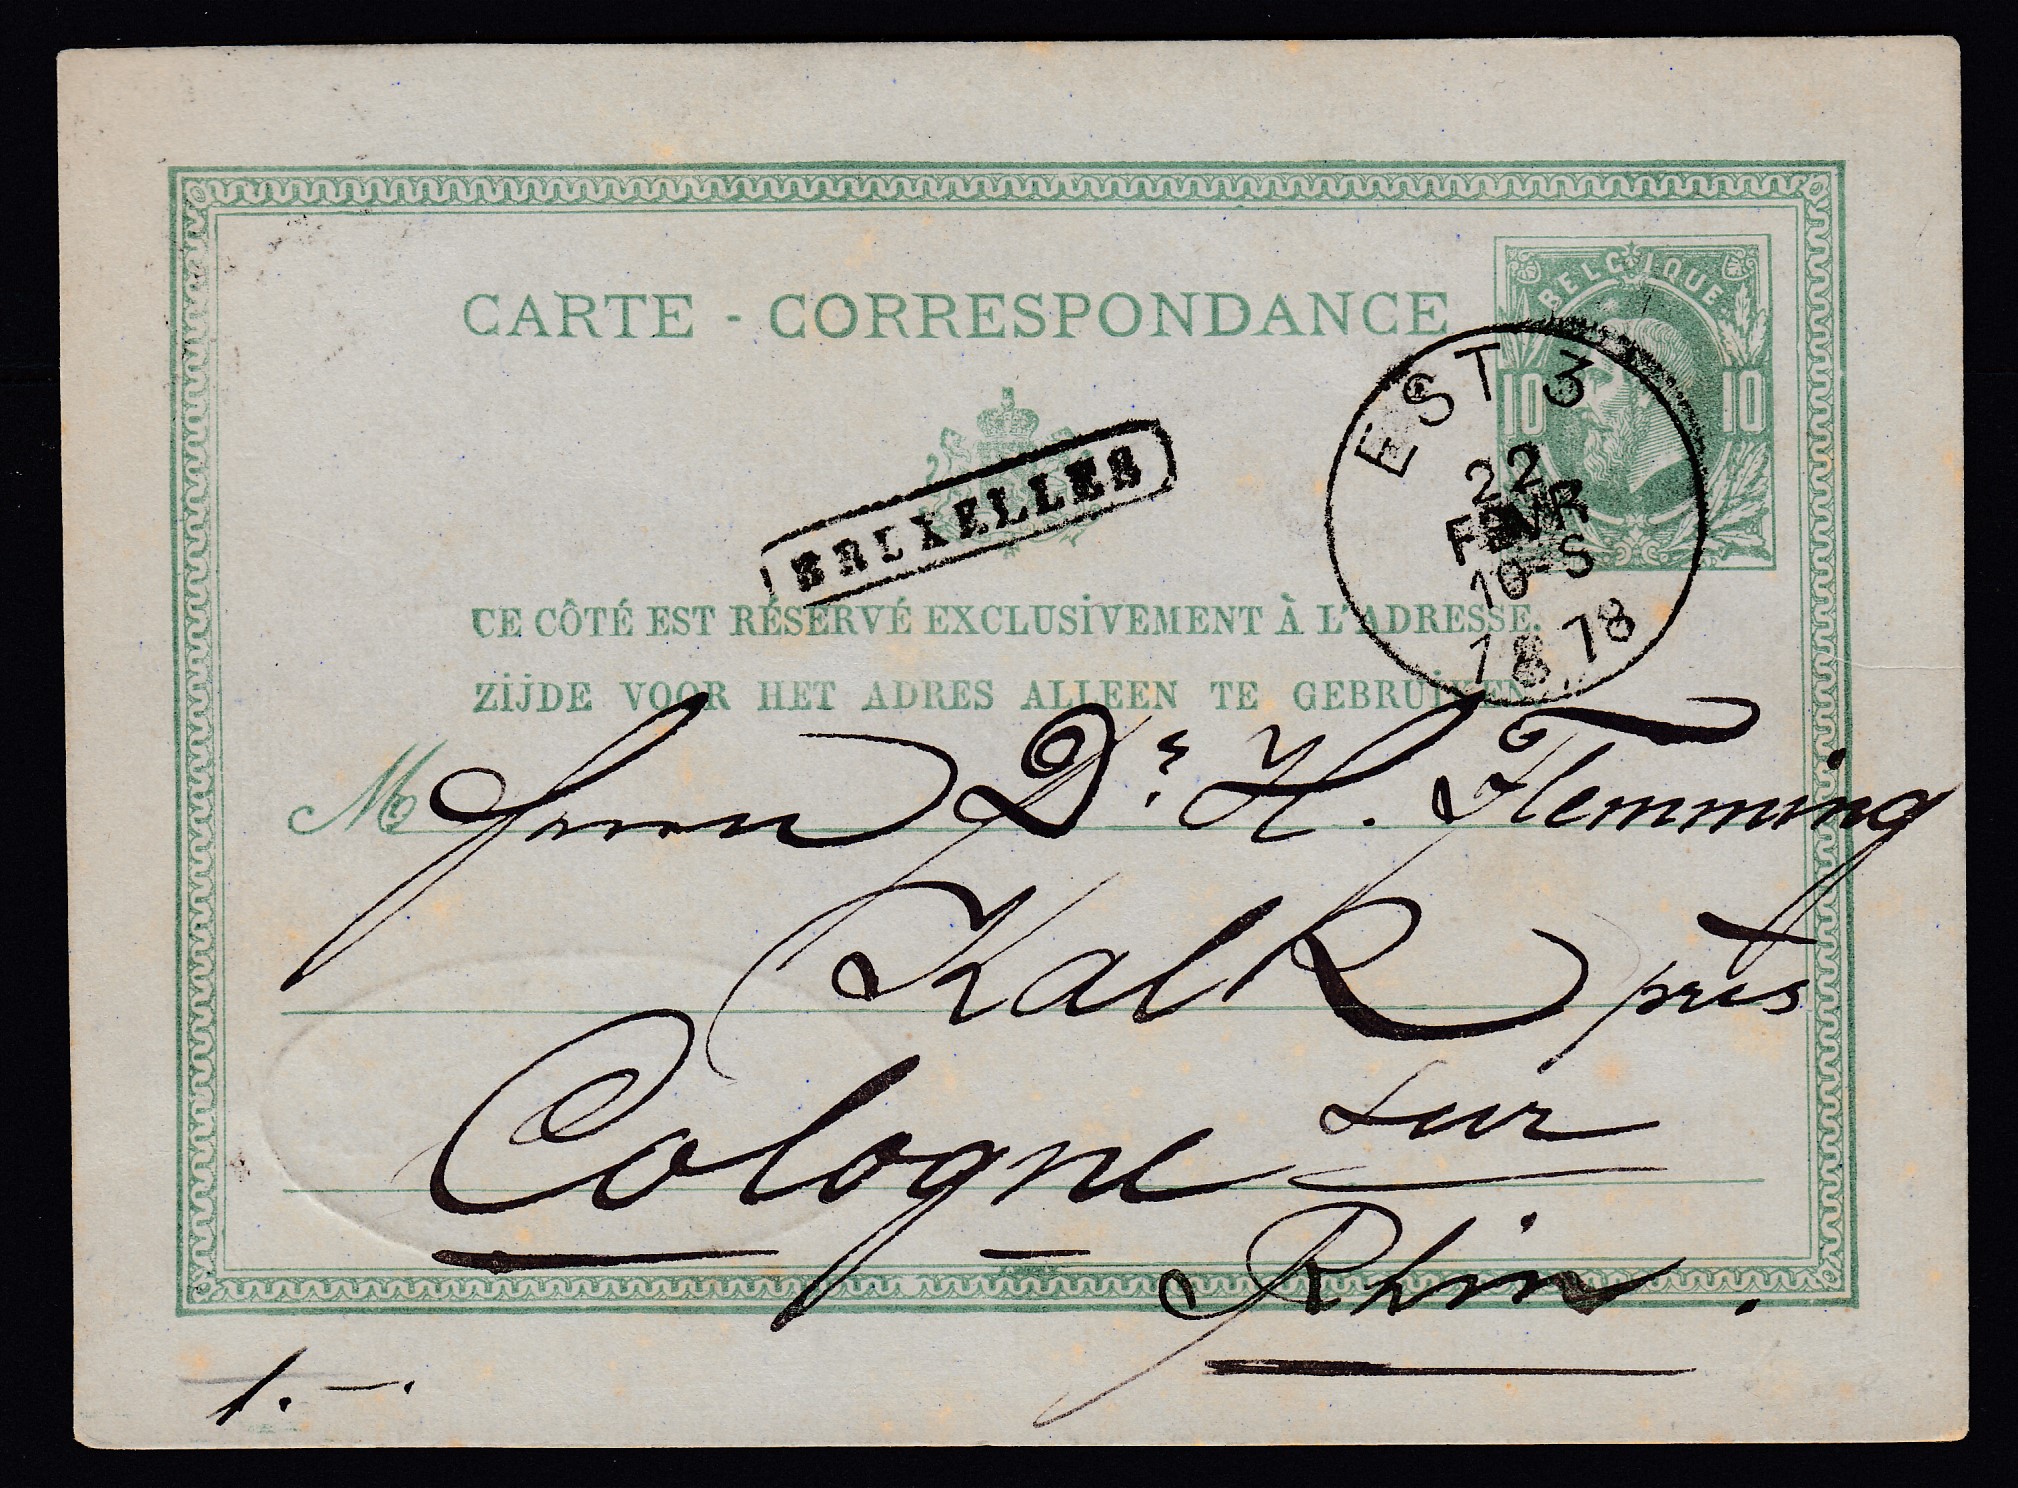 BELGIQUE
CARTE - CORRESPONDANCE
10 10
EST 3
22
FEVR
10-S
1878
BRUXELLES
CE CÔTÉ EST RÉSERVÉ EXCLUSIVEMENT À L'ADRESSE.
ZIJDE VOOR HET ADRES ALLEEN TE GEBRUIKEN.
M Herrn Dr. H. Flemming
Kalk près
Cologne sur
Rhin.
1.—.